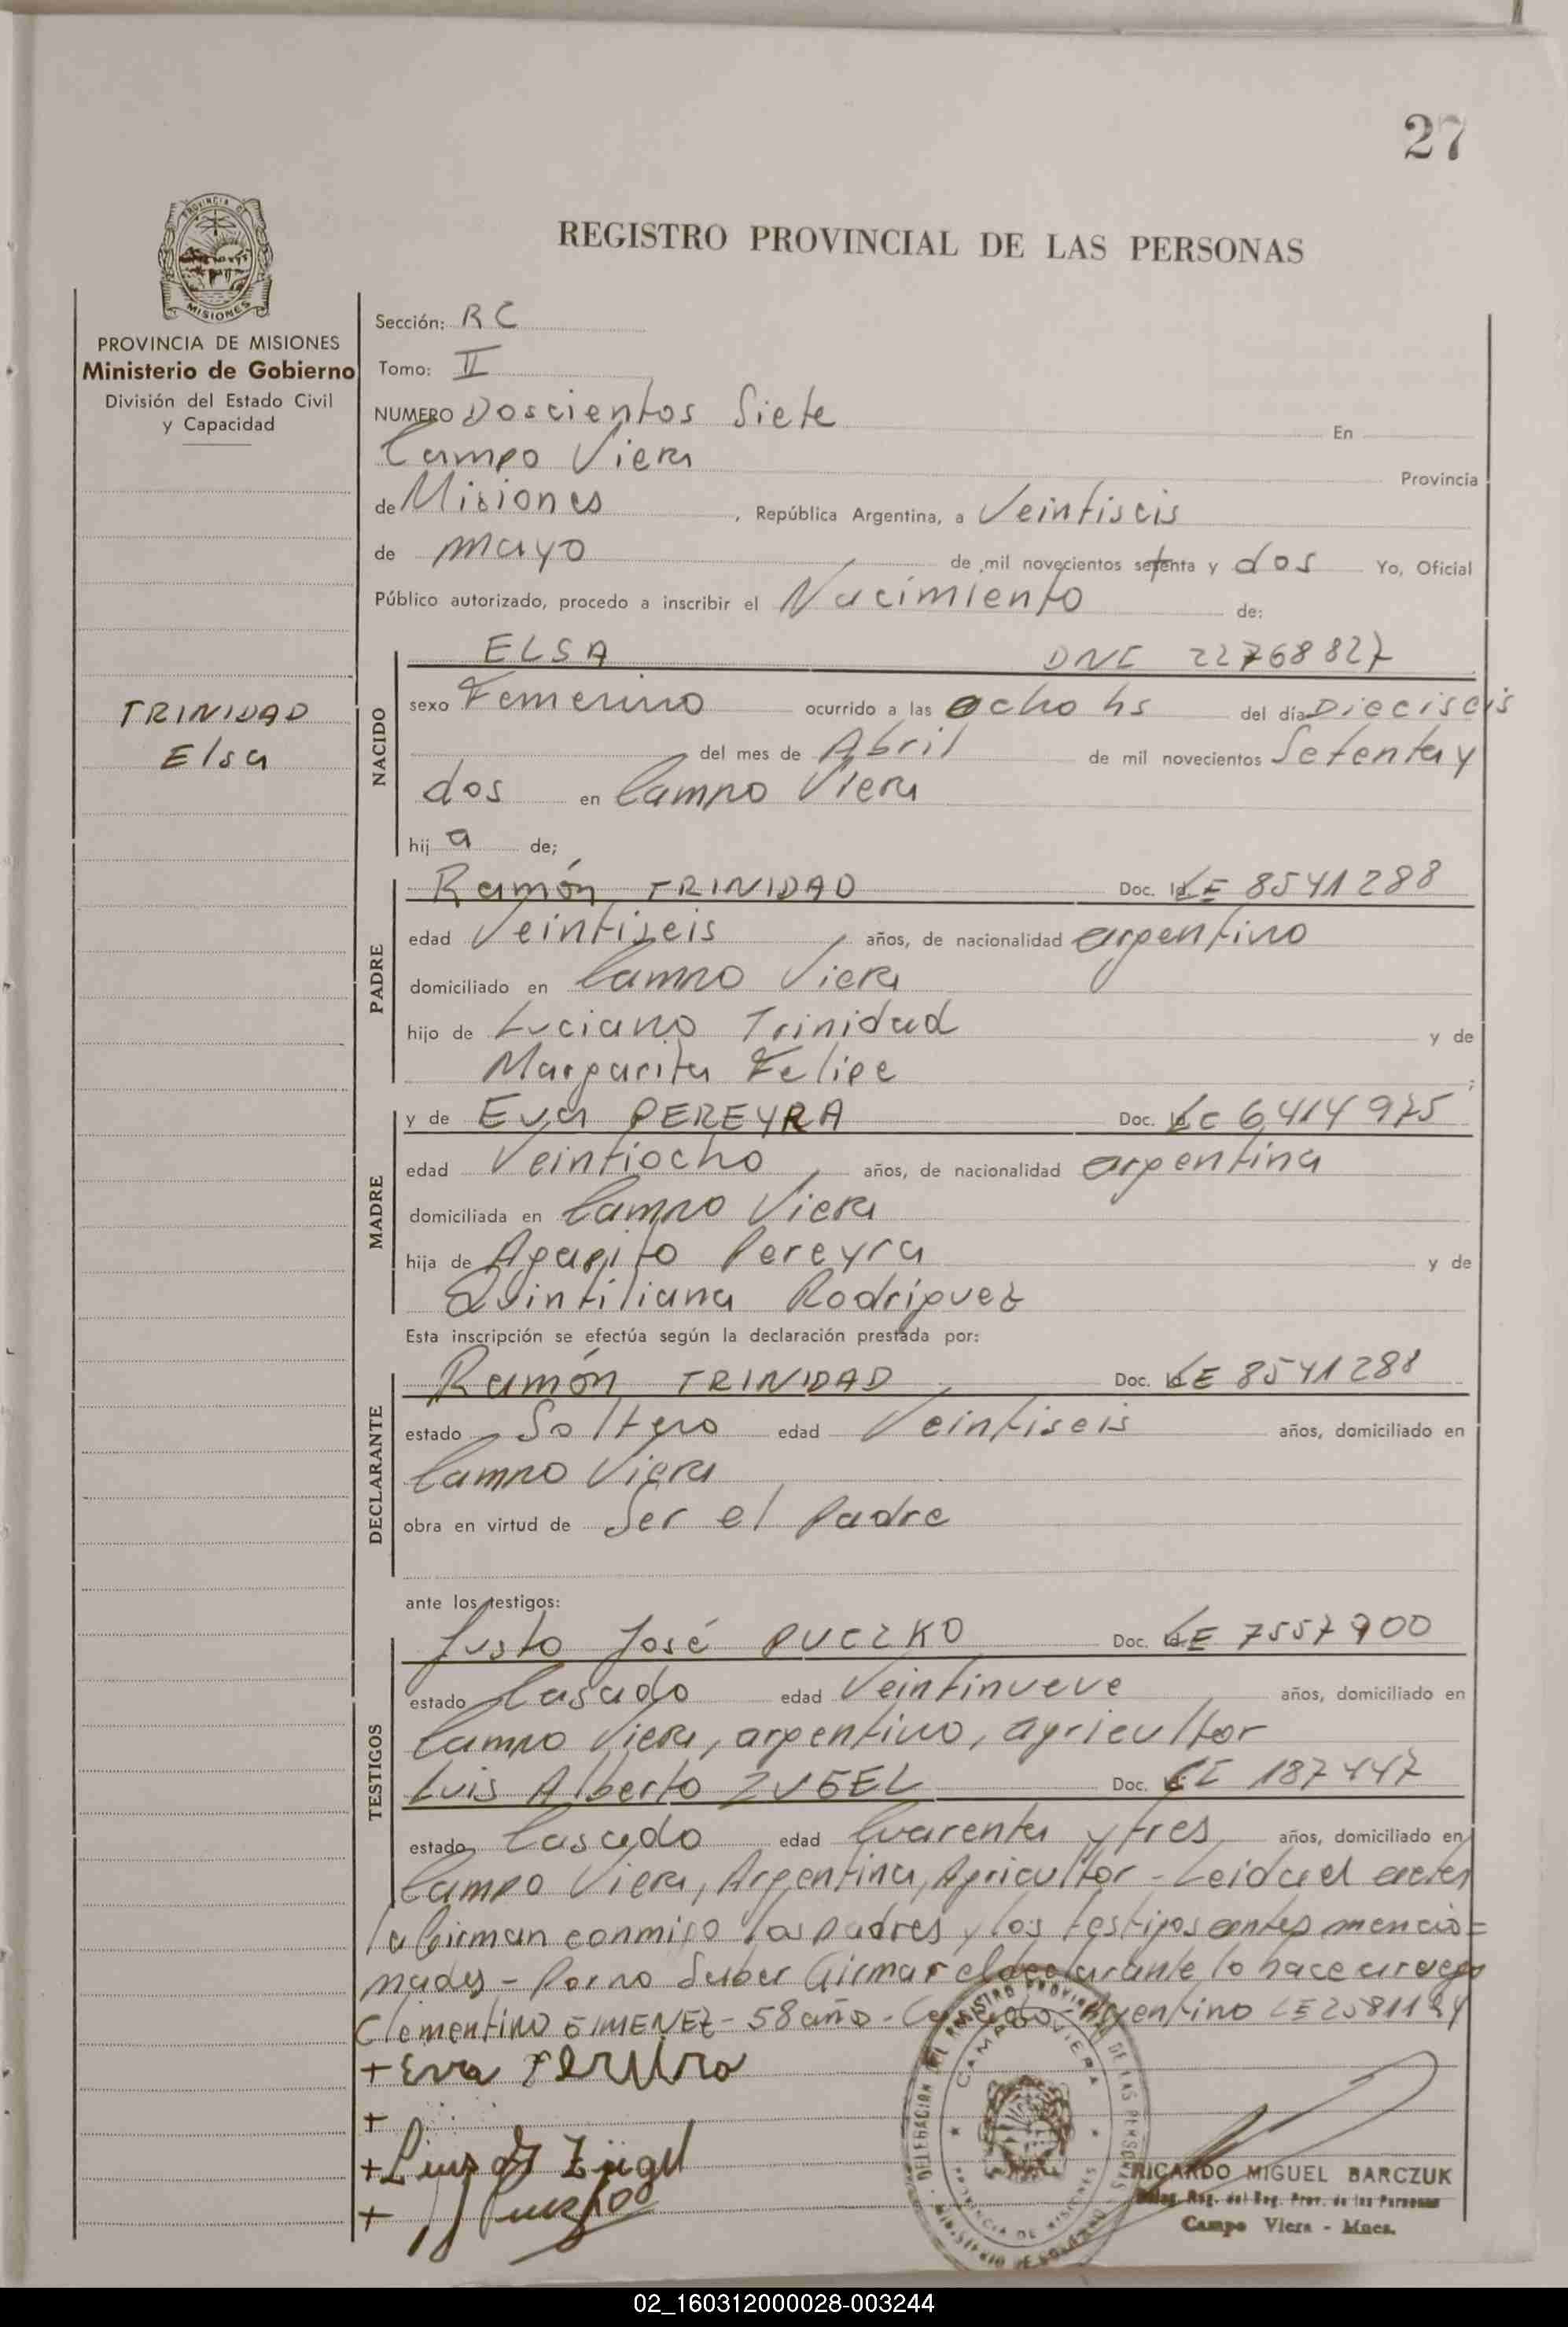 27
PROVINCIA DE
MISIONES
REGISTRO PROVINCIAL DE LAS PERSONAS
PROVINCIA DE MISIONES
Ministerio de Gobierno
División del Estado Civil
y Capacidad
TRINIDAD
Elsa
Sección: RC
Tomo: II
NUMERO Doscientos Siete En
Campo Viera Provincia
de Misiones, República Argentina, a Veintiseis
de mayo de mil novecientos setenta y dos Yo, Oficial
Público autorizado, procedo a inscribir el Nacimiento de:
NACIDO
ELSA DNI 22768827
sexo Femenino ocurrido a las ocho hs del día Dieciseis
del mes de Abril de mil novecientos Setenta y
dos en Campo Viera
hij a de;
PADRE
Ramón TRINIDAD Doc. Id. LE 8541288
edad Veintiseis años, de nacionalidad argentino
domiciliado en Campo Viera
hijo de Luciano Trinidad y de
Margarita Felipe ;
MADRE
y de Eva PEREYRA Doc. Id. LC 6414975
edad Veintiocho años, de nacionalidad argentina
domiciliada en Campo Viera
hija de Agapito Pereyra y de
Quintiliana Rodriguez
Esta inscripción se efectúa según la declaración prestada por:
DECLARANTE
Ramón TRINIDAD Doc. Id. LE 8541288
estado Soltero edad Veintiseis años, domiciliado en
Campo Viera
obra en virtud de Ser el Padre
ante los testigos:
TESTIGOS
Justo José PUCZKO Doc. Id. LE 7557900
estado Casado edad Veintinueve años, domiciliado en
Campo Viera, argentino, agricultor
Luis Alberto ZUGEL Doc. Id. CI 187447
estado Casado edad Cuarenta y tres años, domiciliado en
Campo Viera, Argentina, Agricultor - Leida el acta
la firman conmigo los padres y los testigos antes mencio=
nados - Por no Saber firmar el declarante lo hace a ruego
Clementino GIMENEZ - 58 año - Casado - Argentino LE 2581124
+ Eva
+
+ Luis A Zügel
+ Puczko
DELEGACION DEL REGISTRO PROVINCIAL DE LAS PERSONAS
CAMPO VIERA
PROVINCIA DE MISIONES
MINISTERIO DE GOBIERNO
RICARDO MIGUEL BARCZUK
Deleg. Reg. del Reg. Prov. de las Personas
Campo Viera - Mnes.
02_160312000028-003244